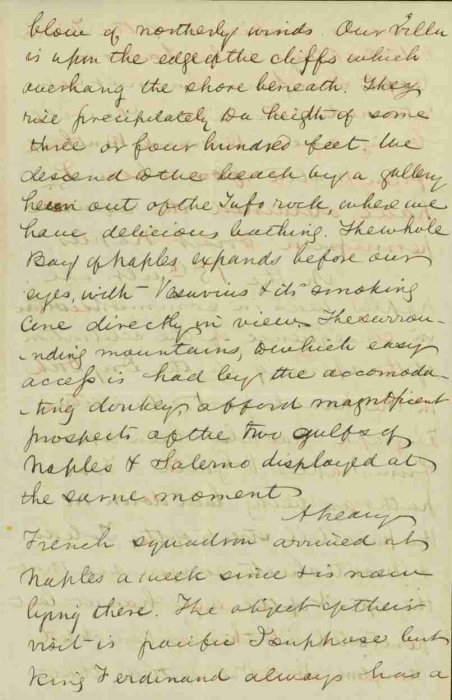 blow of northerly winds. Our Villa
is upon the edge of the cliffs which
overhang the shore beneath. They
rise precipitately to a heigth of some
three or four hundred feet. We
descend to the beach by a gallery
hewn out of the Tufo rock, where we
have delicious bathing. The whole
Bay of Naples expands before our
eyes, with Vesuvius & its smoking
cone directly in view. The surrou-
-nding mountains, to which easy
access is had by the accomoda-
-ting donkeys, afford magnificent
prospects of the two gulfs of
Naples & Salerno displayed at
the same moment
A heavy
French squadron arrived at
Naples a week since & is now
lying there. The object of their
visit is pacific I suppose but
King Ferdinand always has a